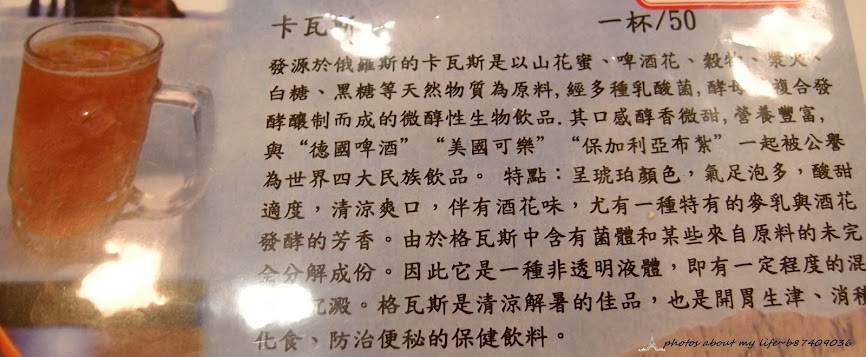 卡瓦斯 一杯/50
發源於俄羅斯的卡瓦斯是以山花蜜、啤酒花、穀物、漿火、
白糖、黑糖等天然物質為原料,經多種乳酸菌,酵母 複合發
酵釀制而成的微醇性生物飲品.其口感醇香微甜,營養豐富,
與“德國啤酒”“美國可樂”“保加利亞布紮”一起被公譽
為世界四大民族飲品。 特點:呈琥珀顏色,氣足泡多,酸甜
適度,清涼爽口,伴有酒花味,尤有一種特有的麥乳與酒花
發酵的芳香。由於格瓦斯中含有菌體和某些來自原料的未完
全分解成份。因此它是一種非透明液體,即有一定程度的混
沉澱。格瓦斯是清涼解暑的佳品,也是開胃生津、消
化食、防治便秘的保健飲料。
photos about my life~b87409036